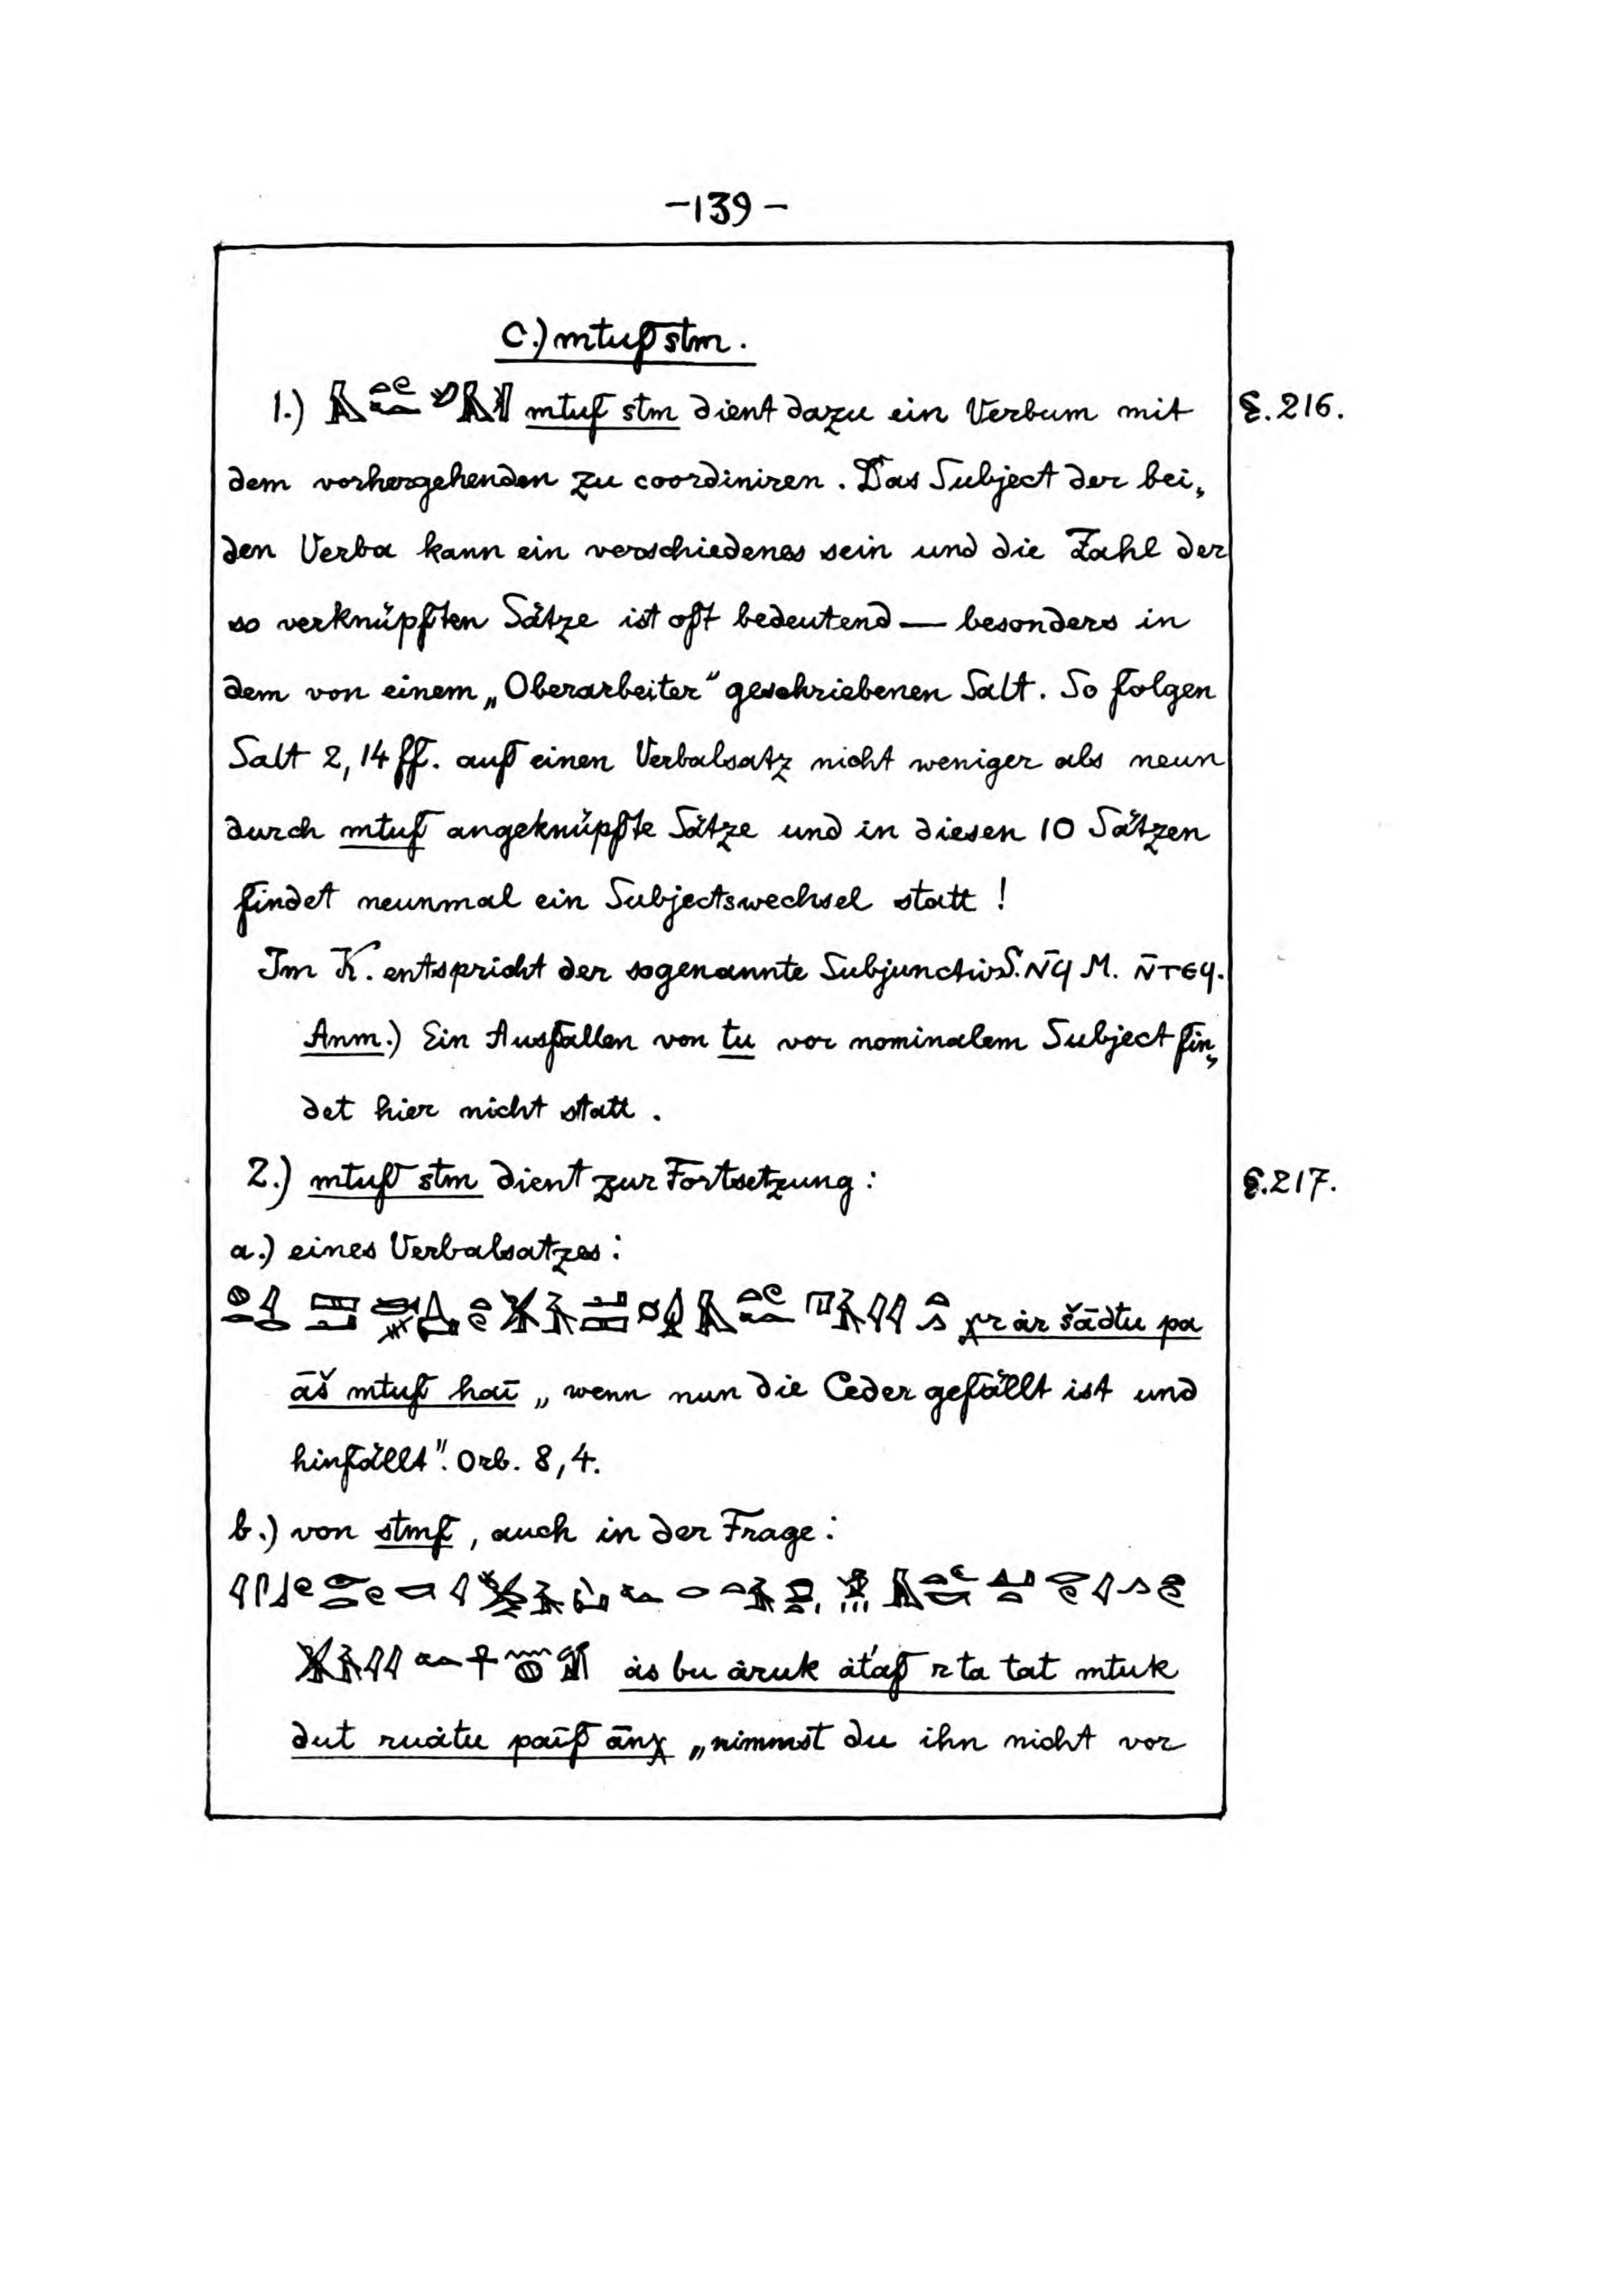 -139-
C.) mtuf stm.
1.) mtuf stm dient dazu ein Verbum mit §.216.
dem vorhergehenden zu coordiniren. Das Subject der bei„
den Verba kann ein verschiedenes sein und die Zahl der
so verknüpften Sätze ist oft bedeutend — besonders in
dem von einem „Oberarbeiter" geschriebenen Salt. So folgen
Salt 2,14 ff. auf einen Verbalsatz nicht weniger als neun
durch mtuf angeknüpfte Sätze und in diesen 10 Sätzen
findet neunmal ein Subjectswechsel statt!
Im K. entspricht der sogenannte Subjunctiv S. N̄ϥ M. N̄ⲧⲉϥ.
Anm.) Ein Ausfallen von tu vor nominalem Subject fin„
det hier nicht statt.
2.) mtuf stm dient zur Fortsetzung: §.217.
a.) eines Verbalsatzes:
χr ȧr šādtu pa
āš mtuf haī „wenn nun die Ceder gefällt ist und
hinfällt". Orb. 8,4.
b.) von stmf, auch in der Frage:
ȧs bu ȧruk ȧt'af r ta tat mtuk
dut ruȧtu paīf ānχ „nimmst du ihn nicht vor